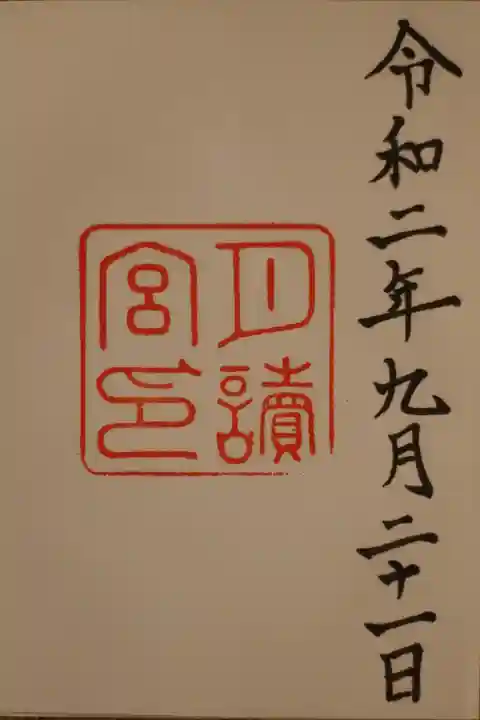 令和二年九月二十一日
月讀
宮印